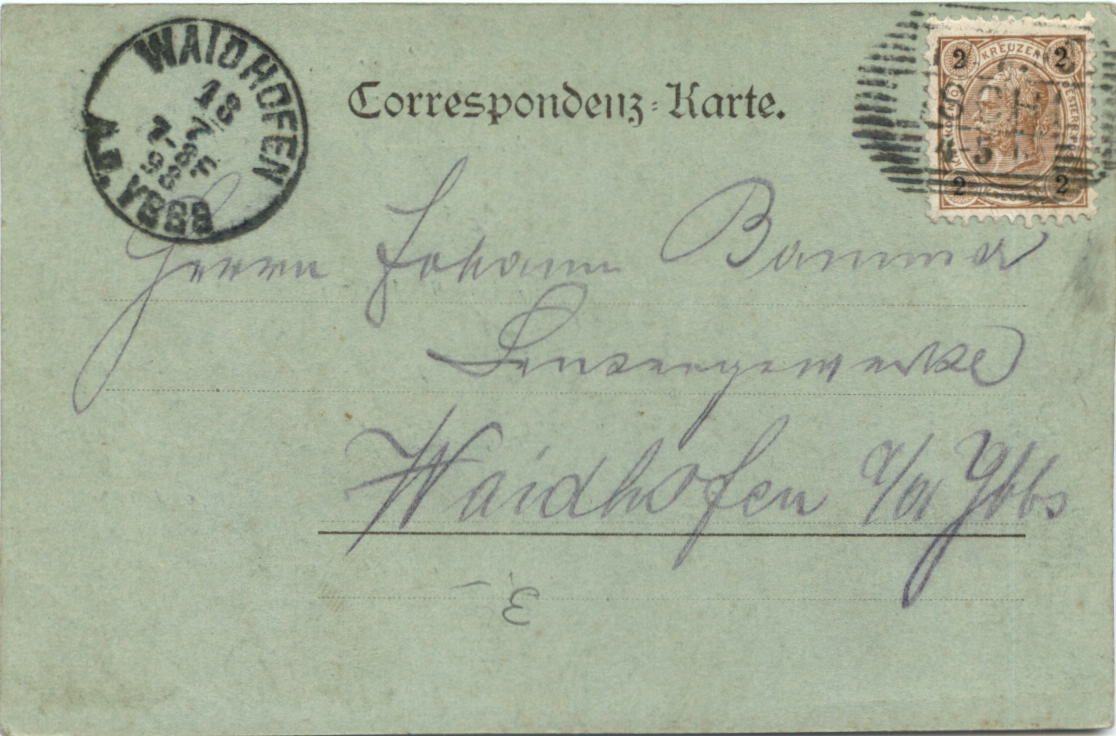 WAIDHOFEN
18
7
7-8F
98
A.D. YBBS
Correspondenz-Karte.
2 KREUZER 2
2 2
5
Herrn Johann Bammer
Sensengewerke
Waidhofen a/d Ybbs
3